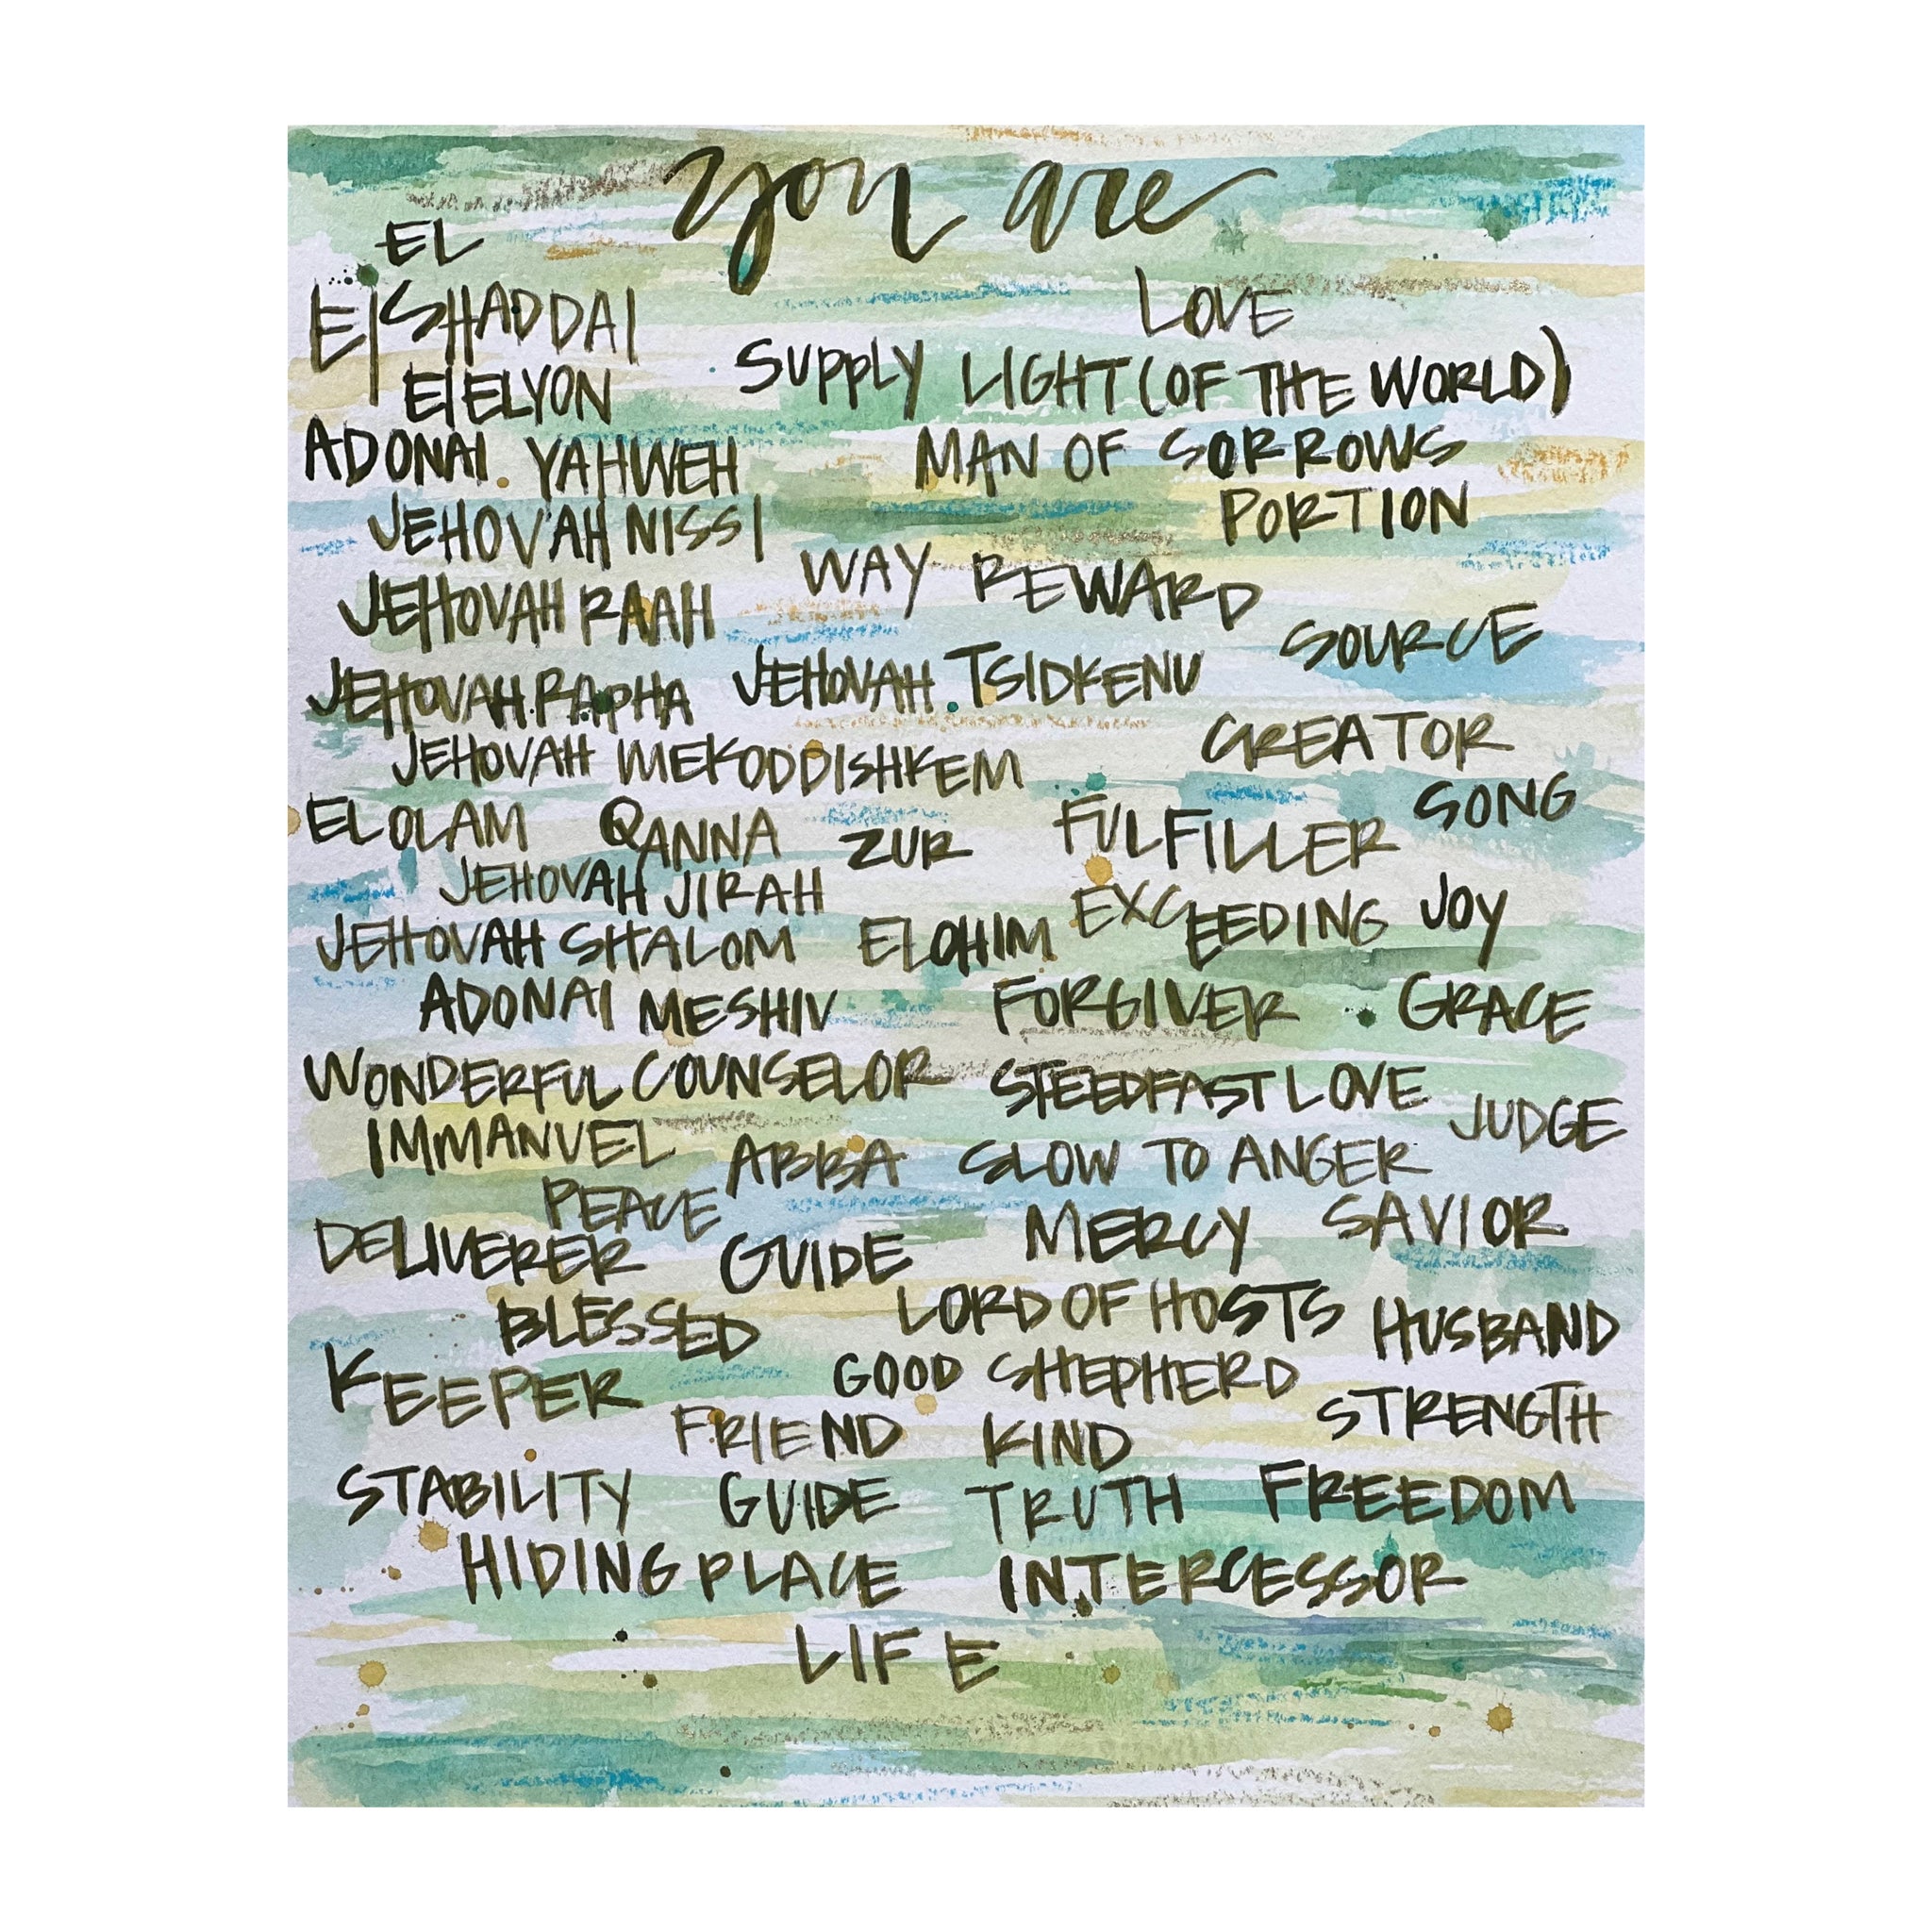 you are
EL
El SHADDAI
LOVE
El ELYON
SUPPLY LIGHT (OF THE WORLD)
ADONAI YAHWEH
MAN OF SORROWS
JEHOVAH NISSI
PORTION
WAY REWARD
JEHOVAH RAAH
SOURCE
JEHOVAH RAPHA JEHOVAH TSIDKENU
CREATOR
JEHOVAH MEKODDISHKEM
SONG
EL OLAM QANNA ZUR FULFILLER
JEHOVAH JIRAH
EXCEEDING JOY
JEHOVAH SHALOM ELOHIM
ADONAI MESHIV FORGIVER GRACE
WONDERFUL COUNSELOR STEEDFAST LOVE
JUDGE
IMMANUEL ABBA SLOW TO ANGER
PEACE
DELIVERER GUIDE MERCY SAVIOR
BLESSED LORD OF HOSTS HUSBAND
KEEPER GOOD SHEPHERD
STRENGTH
FRIEND KIND
STABILITY GUIDE TRUTH FREEDOM
HIDING PLACE INTERCESSOR
LIFE